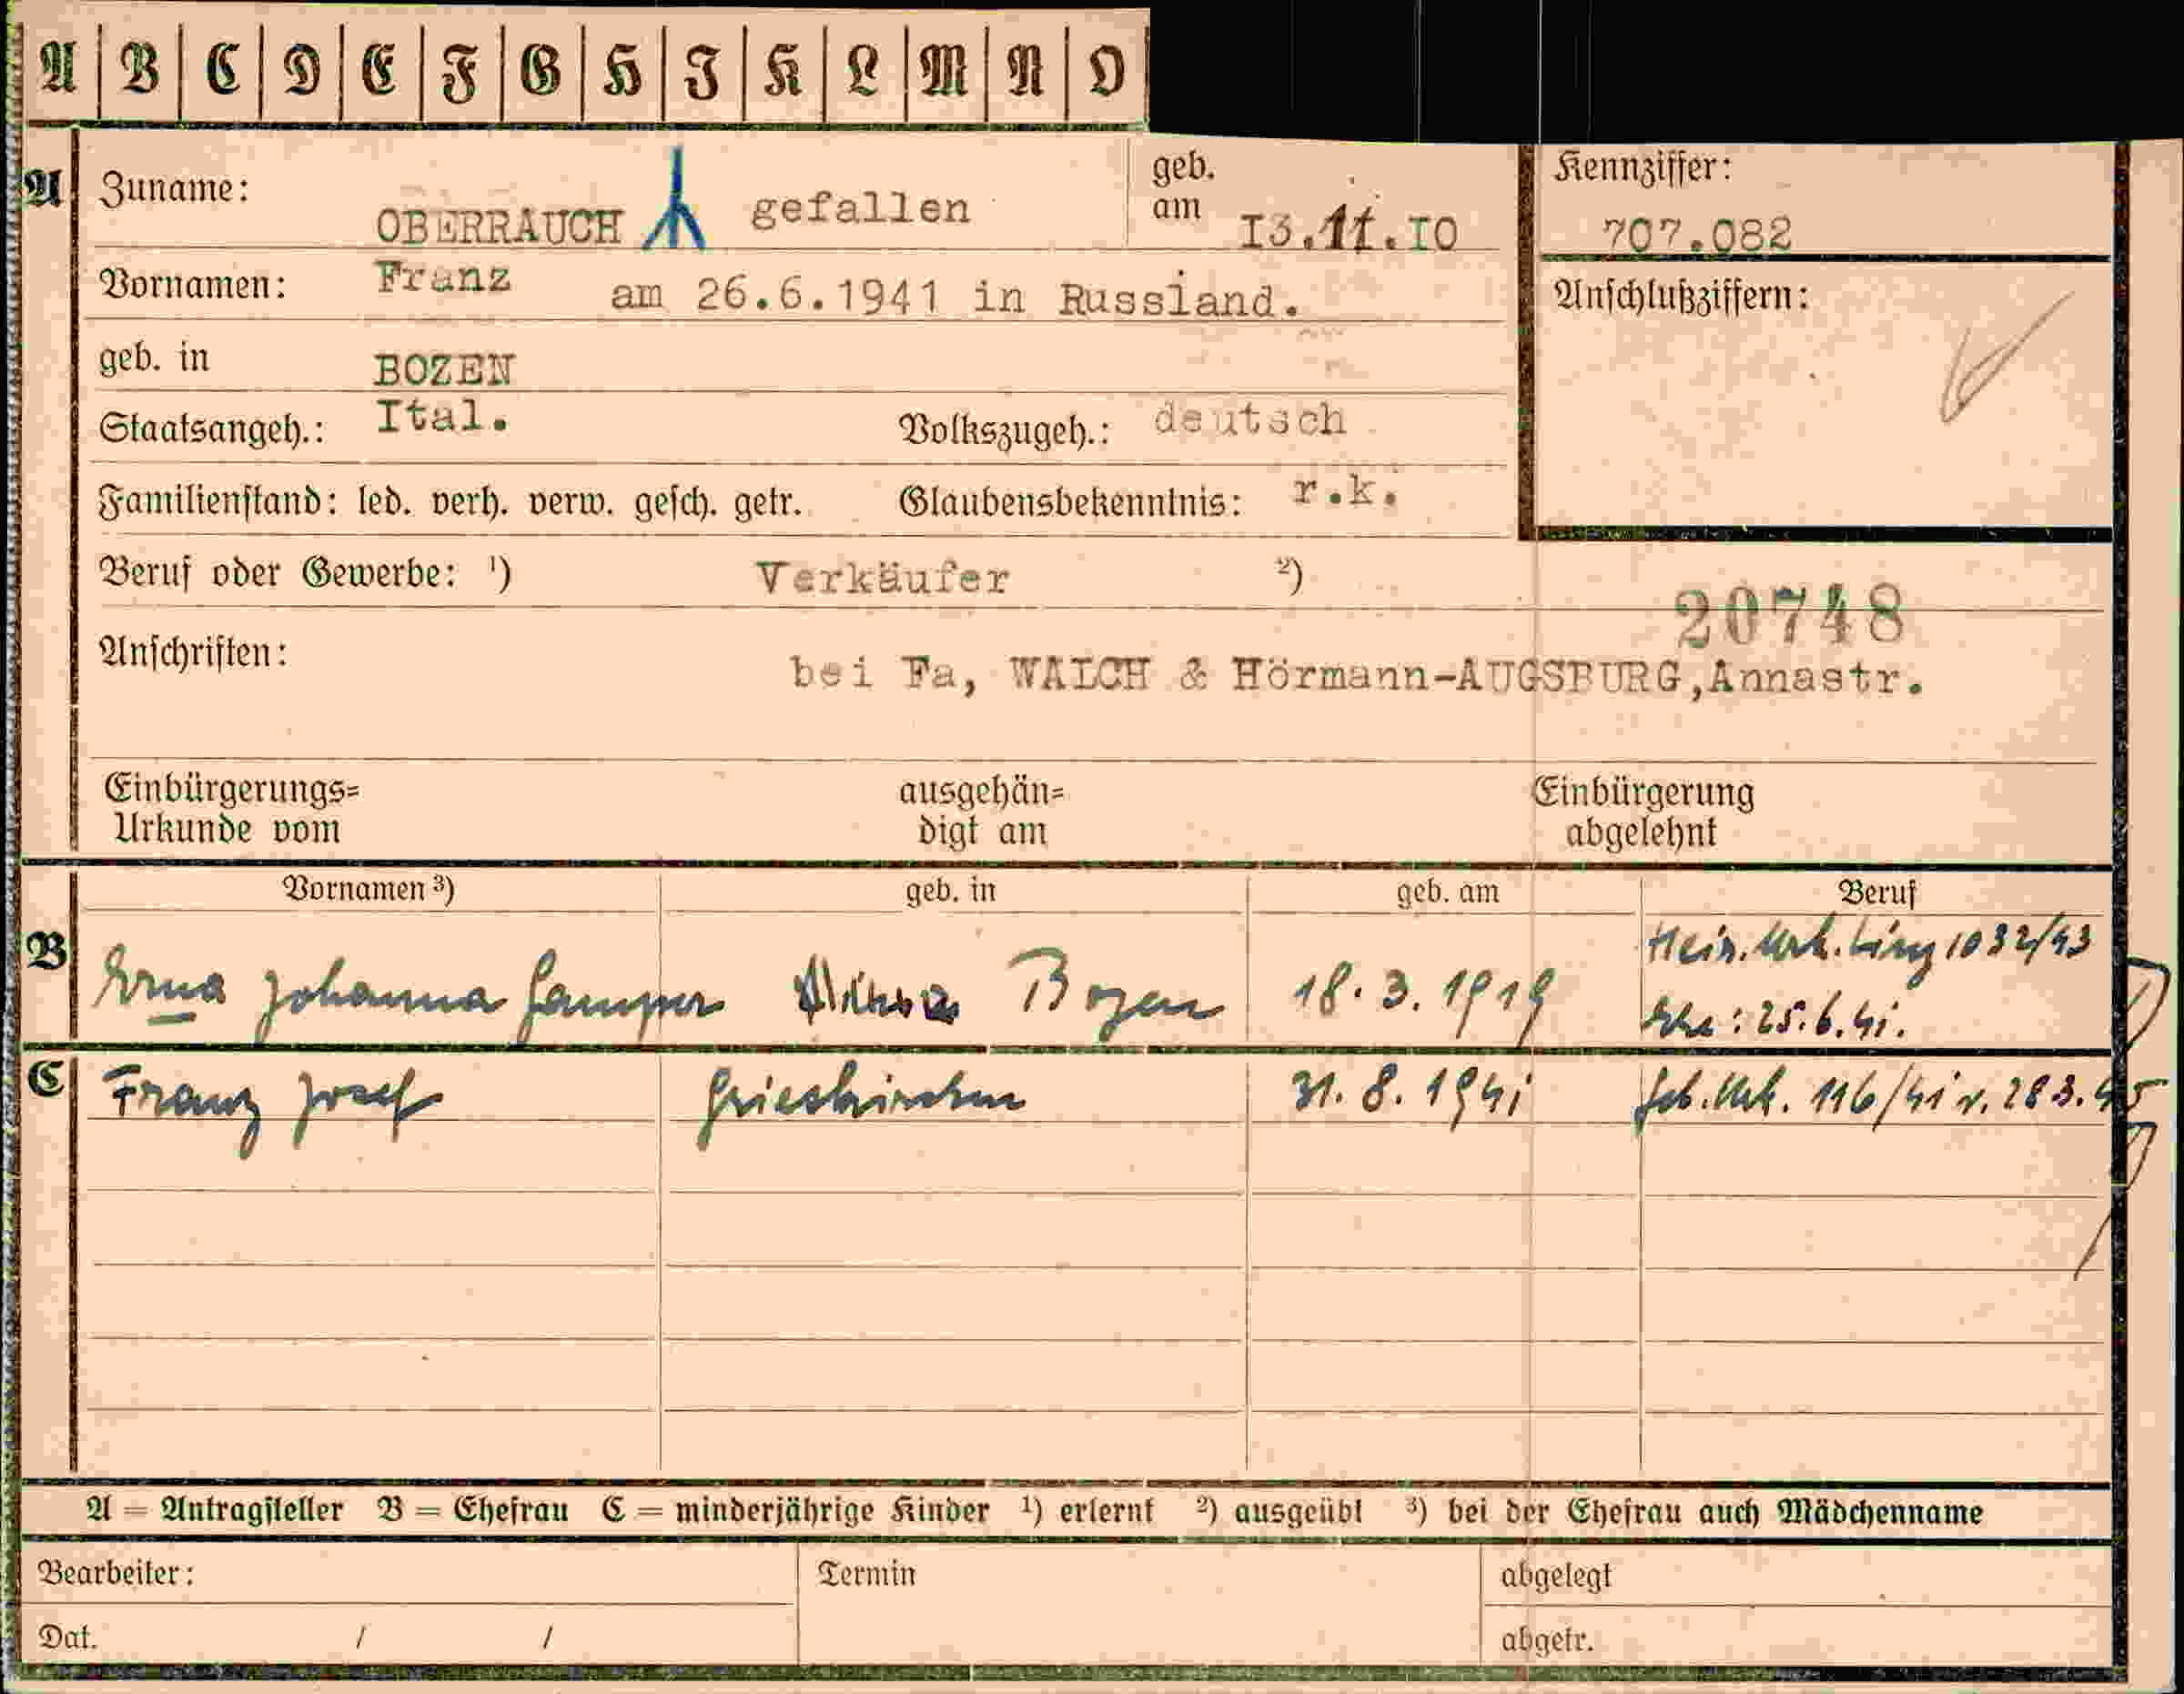 A B C D E F G H I K L M N O
A Zuname: OBERRAUCH gefallen geb. am 13.11.10 Kennziffer: 707.082
Vornamen: Franz am 26.6.1941 in Russland. Anschlußziffern:
geb. in BOZEN
Staatsangeh.: Ital. Volkszugeh.: deutsch
Familienstand: led. verh. verw. gesch. getr. Glaubensbekenntnis: r.k.
Beruf oder Gewerbe: ¹) Verkäufer ²)
20748
Anschriften: bei Fa, WALCH & Hörmann-AUGSBURG,Annastr.
Einbürgerungs= ausgehän= Einbürgerung
Urkunde vom digt am abgelehnt
Vornamen ³) geb. in geb. am Beruf
B Erna Johanna Gamper Bozen 18.3.1919 Heir. Urk. Linz 1032/43
Ehe: 25.6.41.
C Franz Josef Grieskirchen 31.8.1941 Geb. Urk. 116/41 v. 28 3.45
A = Antragsteller B = Ehefrau C = minderjährige Kinder ¹) erlernt ²) ausgeübt ³) bei der Ehefrau auch Mädchenname
Bearbeiter: Termin abgelegt
Dat. / / abgetr.